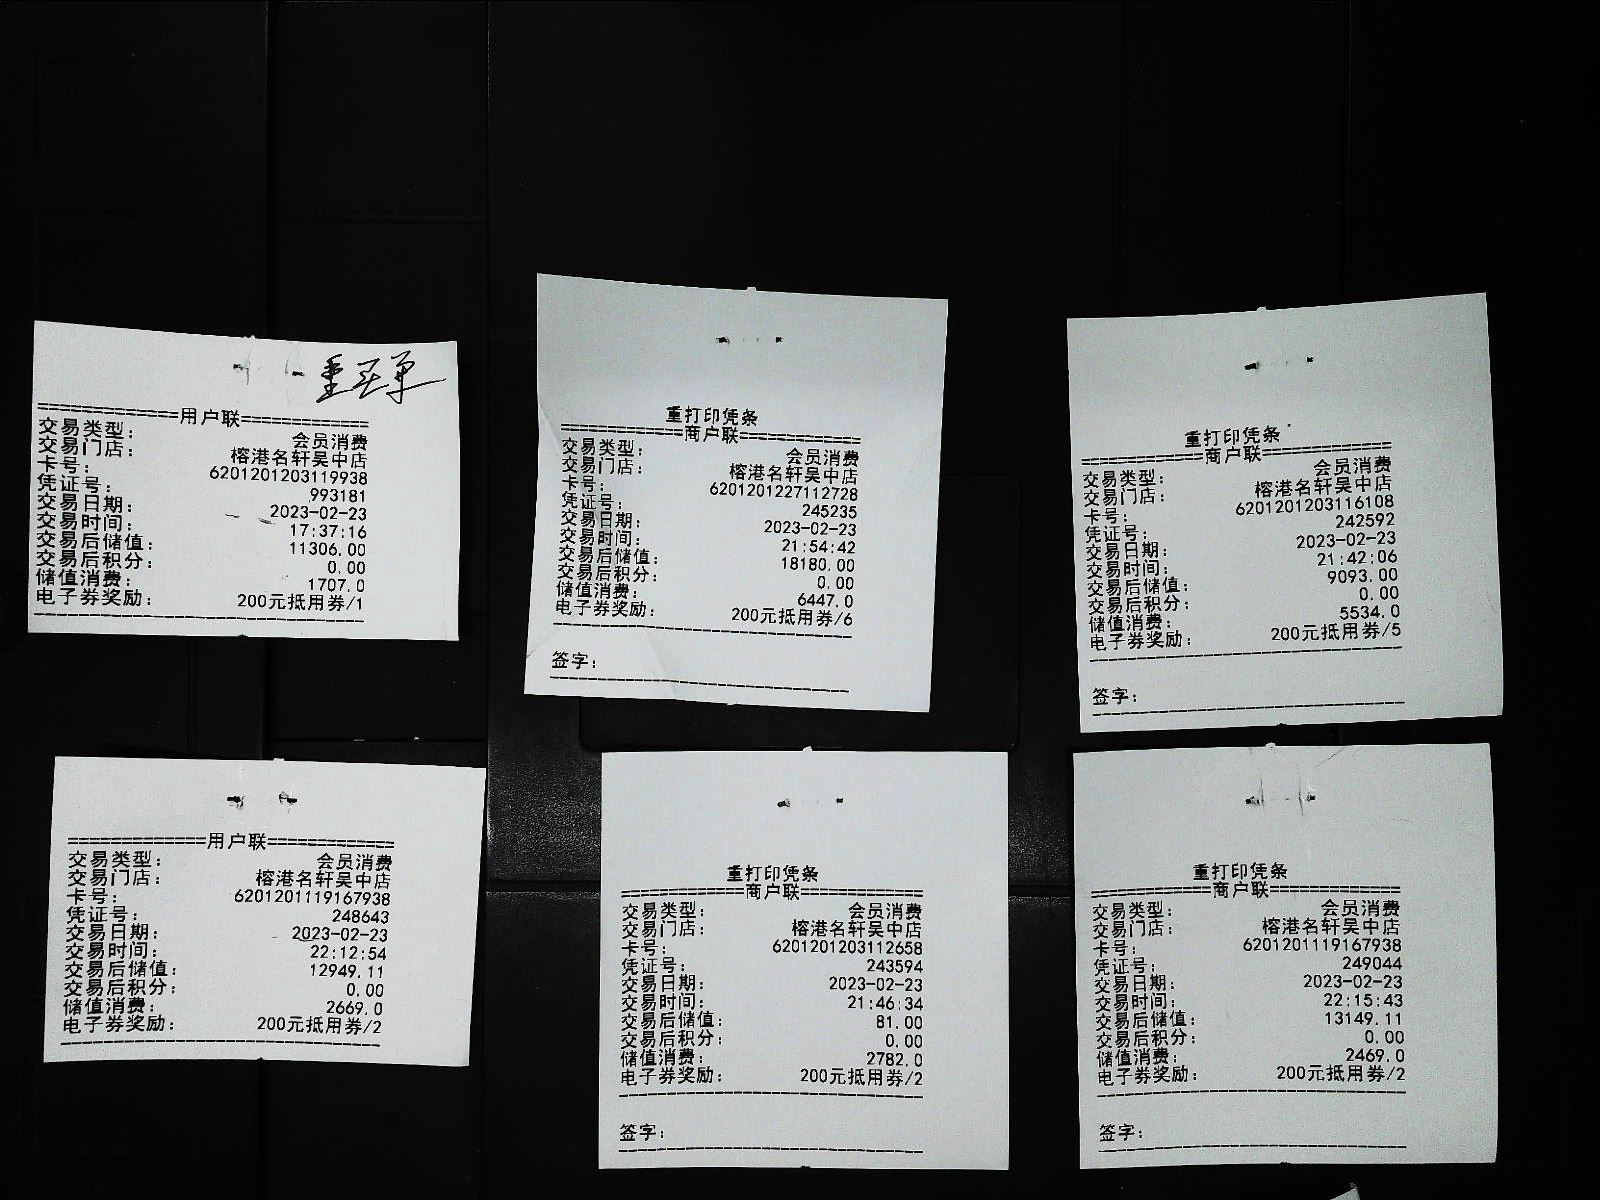 重买单
=============用户联============
交易类型: 会员消费
交易门店: 榕港名轩吴中店
卡号: 6201201203119938
凭证号: 993181
交易日期: 2023-02-23
交易时间: 17:37:16
交易后储值: 11306.00
交易后积分: 0.00
储值消费: 1707.0
电子券奖励: 200元抵用券/1
重打印凭条
============商户联============
交易类型: 会员消费
交易门店: 榕港名轩吴中店
卡号: 6201201227112728
凭证号: 245235
交易日期: 2023-02-23
交易时间: 21:54:42
交易后储值: 18180.00
交易后积分: 0.00
储值消费: 6447.0
电子券奖励: 200元抵用券/6
签字:
重打印凭条
============商户联============
交易类型: 会员消费
交易门店: 榕港名轩吴中店
卡号: 6201201203116108
凭证号: 242592
交易日期: 2023-02-23
交易时间: 21:42:06
交易后储值: 9093.00
交易后积分: 0.00
储值消费: 5534.0
电子券奖励: 200元抵用券/5
签字:
=============用户联============
交易类型: 会员消费
交易门店: 榕港名轩吴中店
卡号: 6201201119167938
凭证号: 248643
交易日期: 2023-02-23
交易时间: 22:12:54
交易后储值: 12949.11
交易后积分: 0.00
储值消费: 2669.0
电子券奖励: 200元抵用券/2
重打印凭条
============商户联============
交易类型: 会员消费
交易门店: 榕港名轩吴中店
卡号: 6201201203112658
凭证号: 243594
交易日期: 2023-02-23
交易时间: 21:46:34
交易后储值: 81.00
交易后积分: 0.00
储值消费: 2782.0
电子券奖励: 200元抵用券/2
签字:
重打印凭条
============商户联============
交易类型: 会员消费
交易门店: 榕港名轩吴中店
卡号: 6201201119167938
凭证号: 249044
交易日期: 2023-02-23
交易时间: 22:15:43
交易后储值: 13149.11
交易后积分: 0.00
储值消费: 2469.0
电子券奖励: 200元抵用券/2
签字: